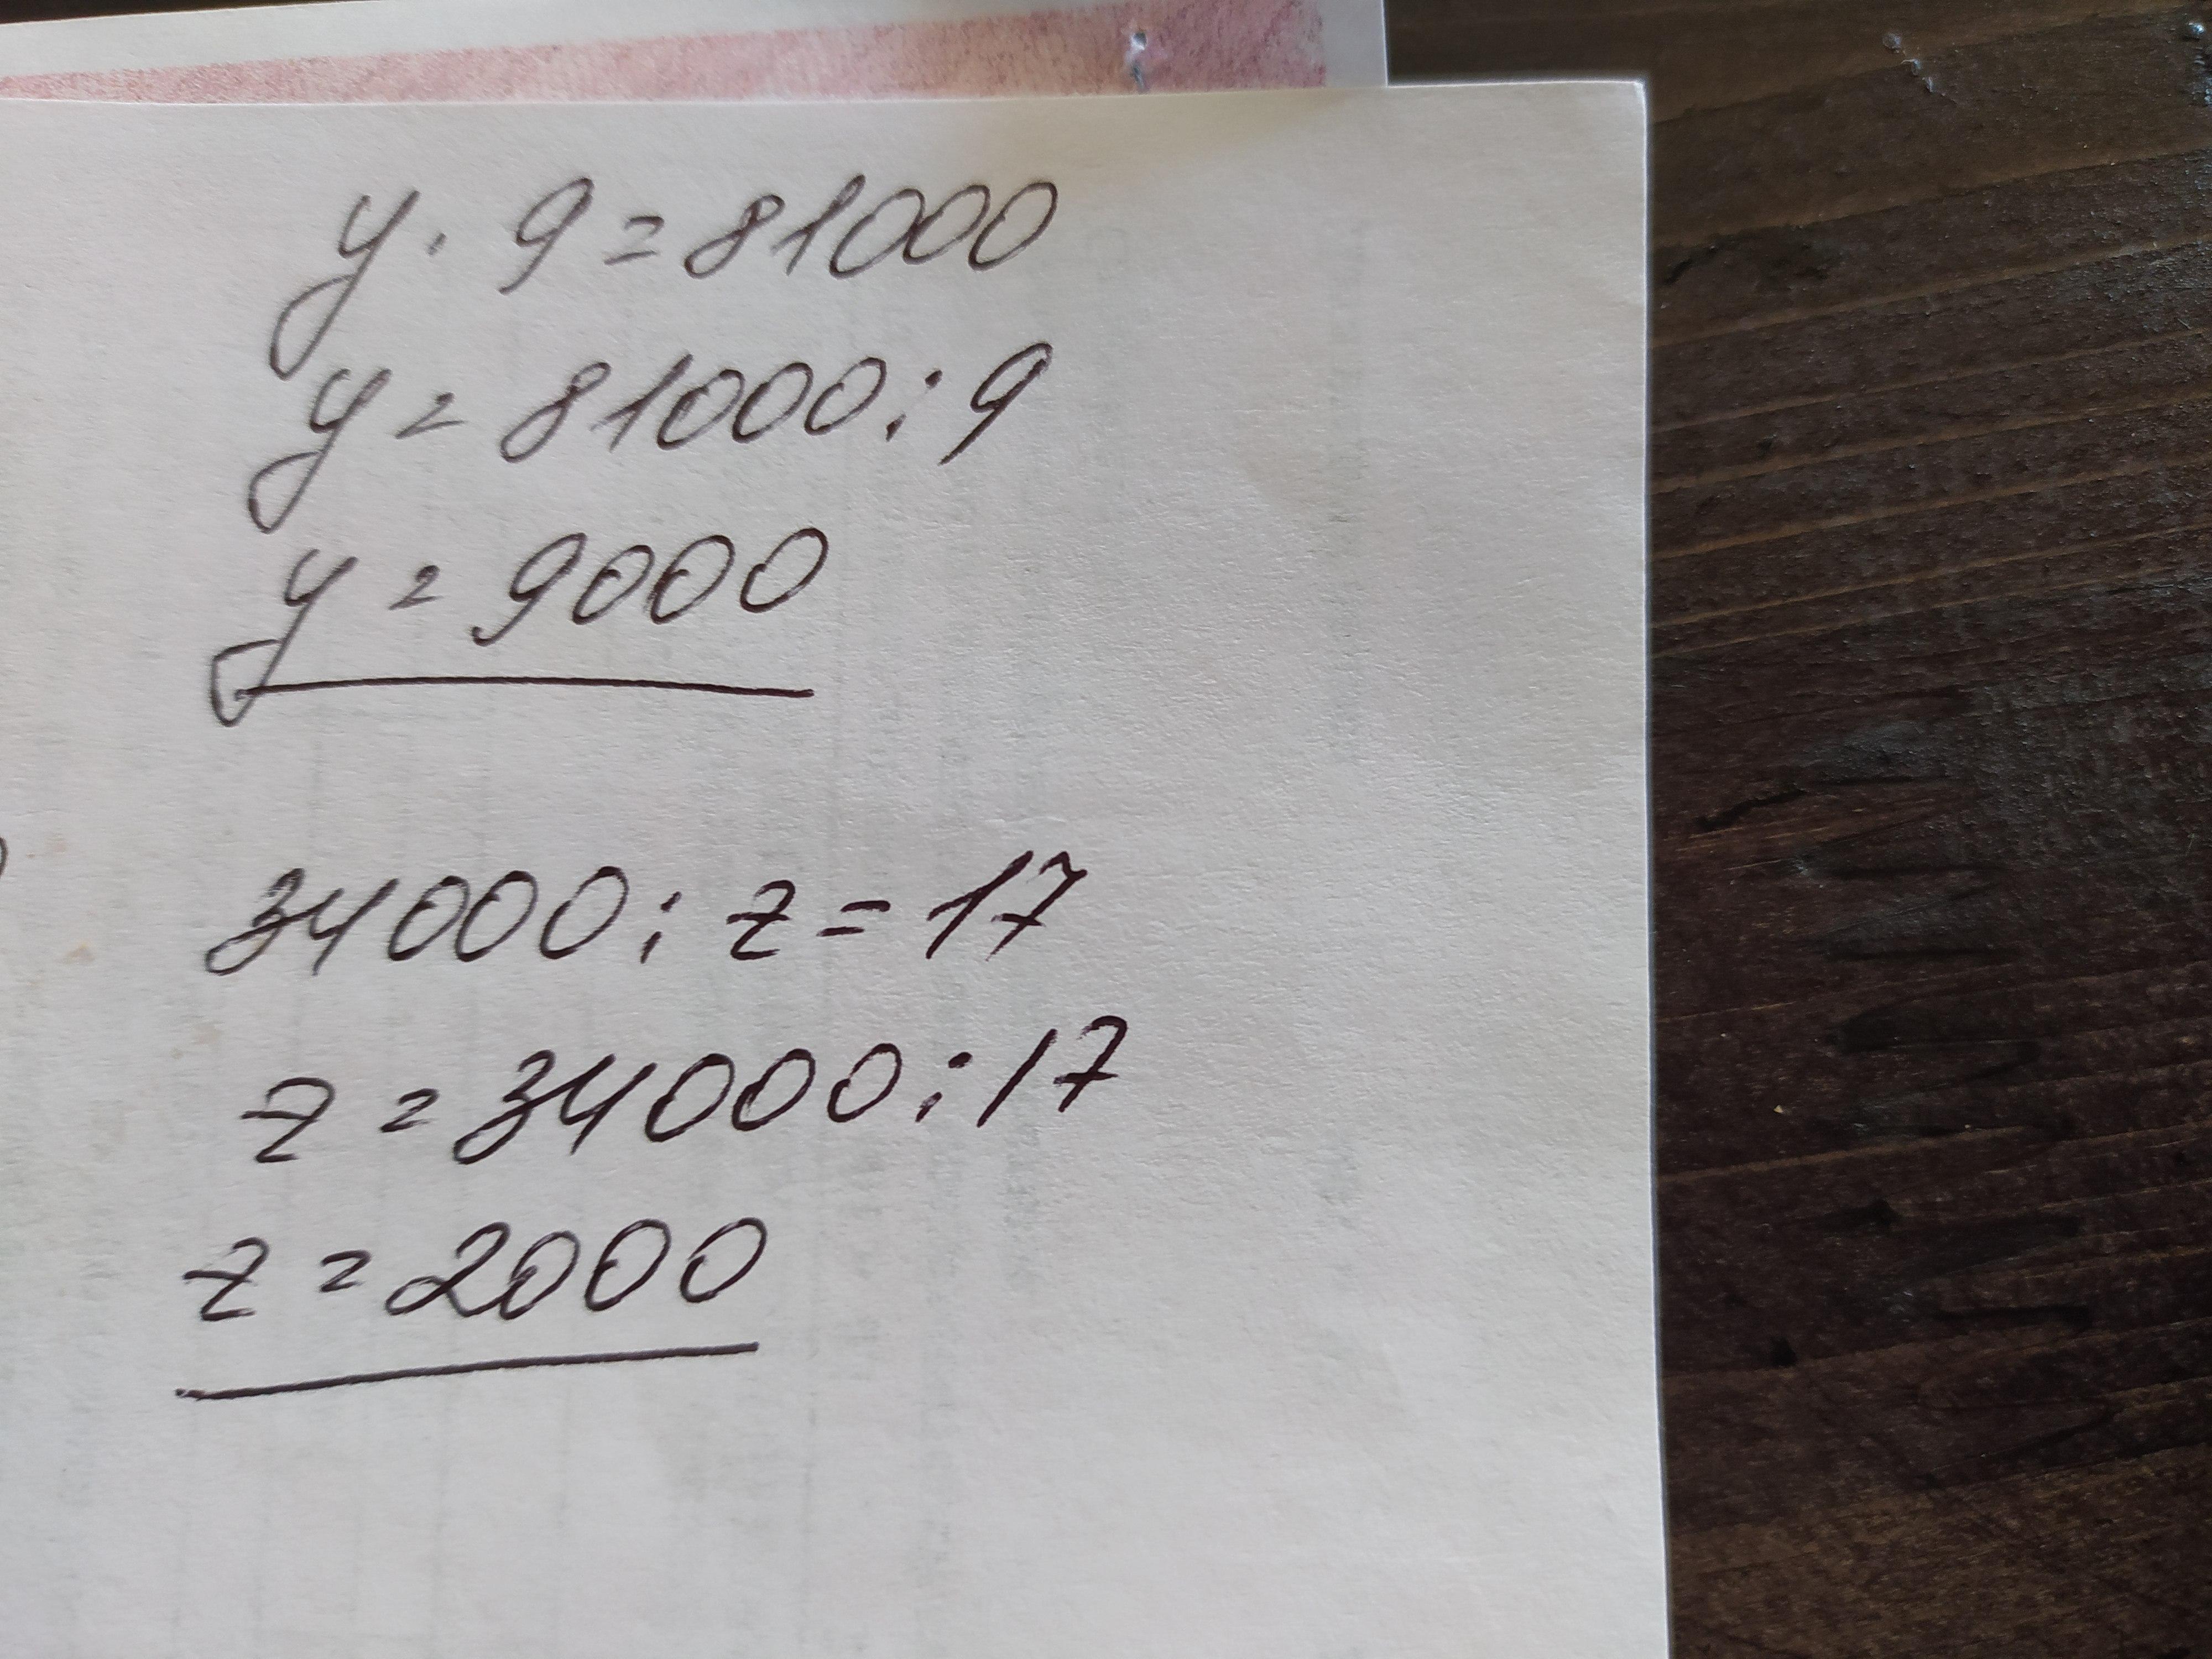 y · 9 = 81000
y = 81000 : 9
y = 9000
34000 : z = 17
z = 34000 : 17
z = 2000